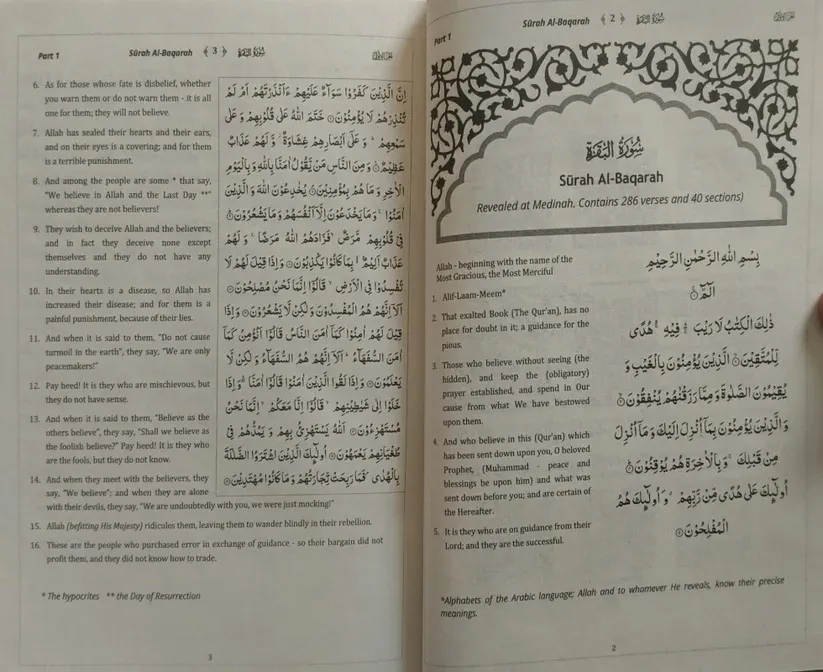 Part 1
Sūrah Al-Baqarah ﴾ 2 ﴿ سُوْرَةُ الْبَقَرَة
سُوْرَةُ الْبَقَرَة
Sūrah Al-Baqarah
Revealed at Medinah. Contains 286 verses and 40 sections)
Allah - beginning with the name of the
Most Gracious, the Most Merciful
1. Alif-Laam-Meem*
2. That exalted Book (The Qur'an), has no
place for doubt in it; a guidance for the
pious.
3. Those who believe without seeing (the
hidden), and keep the (obligatory)
prayer established, and spend in Our
cause from what We have bestowed
upon them.
4. And who believe in this (Qur'an) which
has been sent down upon you, O beloved
Prophet, (Muhammad - peace and
blessings be upon him) and what was
sent down before you; and are certain of
the Hereafter.
5. It is they who are on guidance from their
Lord; and they are the successful.
بِسْمِ اللهِ الرَّحْمٰنِ الرَّحِيْمِ
الٓمّٓ ۚ
ذٰلِكَ الْكِتٰبُ لَا رَيْبَ ۛ فِيْهِ ۛ هُدًى
لِّلْمُتَّقِيْنَ ۙ الَّذِيْنَ يُؤْمِنُوْنَ بِالْغَيْبِ وَ
يُقِيْمُوْنَ الصَّلٰوةَ وَ مِمَّا رَزَقْنٰهُمْ يُنْفِقُوْنَ ۙ
وَ الَّذِيْنَ يُؤْمِنُوْنَ بِمَاۤ اُنْزِلَ اِلَيْكَ وَ مَاۤ اُنْزِلَ
مِنْ قَبْلِكَ ۚ وَ بِالْاٰخِرَةِ هُمْ يُوْقِنُوْنَ ؕ
اُولٰٓئِكَ عَلٰى هُدًى مِّنْ رَّبِّهِمْ ۗ وَ اُولٰٓئِكَ هُمُ
الْمُفْلِحُوْنَ
*Alphabets of the Arabic language; Allah and to whomever He reveals, know their precise
meanings.
2
Part 1 Sūrah Al-Baqarah ﴾ 3 ﴿ سُوْرَةُ الْبَقَرَة
6. As for those whose fate is disbelief, whether
you warn them or do not warn them - it is all
one for them; they will not believe.
7. Allah has sealed their hearts and their ears,
and on their eyes is a covering; and for them
is a terrible punishment.
8. And among the people are some * that say,
"We believe in Allah and the Last Day **"
whereas they are not believers!
9. They wish to deceive Allah and the believers;
and in fact they deceive none except
themselves and they do not have any
understanding.
10. In their hearts is a disease, so Allah has
increased their disease; and for them is a
painful punishment, because of their lies.
11. And when it is said to them, "Do not cause
turmoil in the earth", they say, "We are only
peacemakers!"
12. Pay heed! It is they who are mischievous, but
they do not have sense.
13. And when it is said to them, "Believe as the
others believe", they say, "Shall we believe as
the foolish believe?" Pay heed! It is they who
are the fools, but they do not know.
14. And when they meet with the believers, they
say, "We believe"; and when they are alone
with their devils, they say, "We are undoubtedly with you, we were just mocking!"
15. Allah (befitting His Majesty) ridicules them, leaving them to wander blindly in their rebellion.
16. These are the people who purchased error in exchange of guidance - so their bargain did not
profit them, and they did not know how to trade.
اِنَّ الَّذِيْنَ كَفَرُوْا سَوَآءٌ عَلَيْهِمْ ءَاَنْذَرْتَهُمْ اَمْ لَمْ
تُنْذِرْهُمْ لَا يُؤْمِنُوْنَ خَتَمَ اللهُ عَلٰى قُلُوْبِهِمْ وَ عَلٰى
سَمْعِهِمْ ؕ وَ عَلٰۤى اَبْصَارِهِمْ غِشَاوَةٌ ۫ وَّ لَهُمْ عَذَابٌ
عَظِيْمٌ وَ مِنَ النَّاسِ مَنْ يَّقُوْلُ اٰمَنَّا بِاللهِ وَ بِالْيَوْمِ
الْاٰخِرِ وَ مَا هُمْ بِمُؤْمِنِيْنَ ۘ يُخٰدِعُوْنَ اللهَ وَ الَّذِيْنَ
اٰمَنُوْا ۚ وَ مَا يَخْدَعُوْنَ اِلَّاۤ اَنْفُسَهُمْ وَ مَا يَشْعُرُوْنَ ؕ
فِيْ قُلُوْبِهِمْ مَّرَضٌ ۙ فَزَادَهُمُ اللهُ مَرَضًا ۚ وَ لَهُمْ
عَذَابٌ اَلِيْمٌۢ ۙ بِمَا كَانُوْا يَكْذِبُوْنَ وَ اِذَا قِيْلَ لَهُمْ لَا
تُفْسِدُوْا فِي الْاَرْضِ ۙ قَالُوْۤا اِنَّمَا نَحْنُ مُصْلِحُوْنَ
اَلَاۤ اِنَّهُمْ هُمُ الْمُفْسِدُوْنَ وَ لٰكِنْ لَّا يَشْعُرُوْنَ وَ اِذَا
قِيْلَ لَهُمْ اٰمِنُوْا كَمَاۤ اٰمَنَ النَّاسُ قَالُوْۤا اَنُؤْمِنُ كَمَاۤ
اٰمَنَ السُّفَهَآءُ ؕ اَلَاۤ اِنَّهُمْ هُمُ السُّفَهَآءُ وَ لٰكِنْ لَّا
يَعْلَمُوْنَ وَ اِذَا لَقُوا الَّذِيْنَ اٰمَنُوْا قَالُوْۤا اٰمَنَّا ۖ وَ اِذَا
خَلَوْا اِلٰى شَيٰطِيْنِهِمْ ۙ قَالُوْۤا اِنَّا مَعَكُمْ ۙ اِنَّمَا نَحْنُ
مُسْتَهْزِءُوْنَ اَللهُ يَسْتَهْزِئُ بِهِمْ وَ يَمُدُّهُمْ فِيْ
طُغْيَانِهِمْ يَعْمَهُوْنَ اُولٰٓئِكَ الَّذِيْنَ اشْتَرَوُا الضَّلٰلَةَ
بِالْهُدٰى ۪ فَمَا رَبِحَتْ تِّجَارَتُهُمْ وَ مَا كَانُوْا مُهْتَدِيْنَ
* The hypocrites ** the Day of Resurrection
3